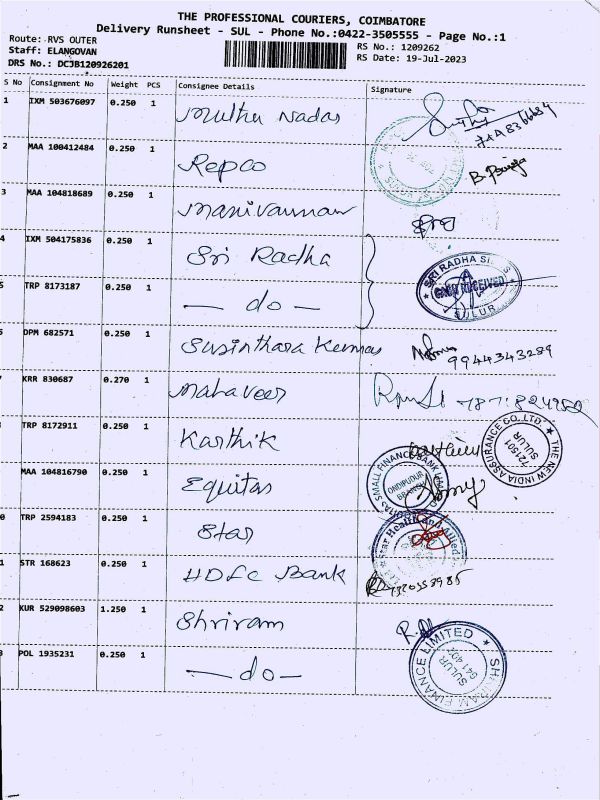 THE PROFESSIONAL COURIERS, COIMBATORE
Delivery Runsheet - SUL - Phone No.:0422-3505555 - Page No.:1
Route: RVS OUTER
Staff: ELANGOVAN
DRS No.: DCJB120926201
RS No.: 1209262
RS Date: 19-Jul-2023
S No Consignment No Weight PCS Consignee Details Signature
1 IXM 503676097 0.250 1 Muthu Nadar
2 MAA 100412484 0.250 1 Repco
3 MAA 104818689 0.250 1 Manivannan
4 IXM 504175836 0.250 1 Sri Radha
SRI RADHA
RECEIVED
SULUR
5 TRP 8173187 0.250 1 — do —
DPM 682571 0.250 1 Susinthara Kumar 9944343289
KRR 830687 0.270 1 Mahaveer
TRP 8172911 0.250 1 Karthik
THE NEW INDIA ASSURANCE CO.,LTD.
721501
SULUR
MAA 104816790 0.250 1 Equitas
SMALL FINANCE BANK
ONDIPUDUR
BRANCH
0 TRP 2594183 0.250 1 Star
Star Health and Allied
1 STR 168623 0.250 1 HDFC Bank
2 KUR 529098603 1.250 1 Shriram
FINANCE LIMITED
SULUR
641 402
POL 1935231 0.250 1 — do —